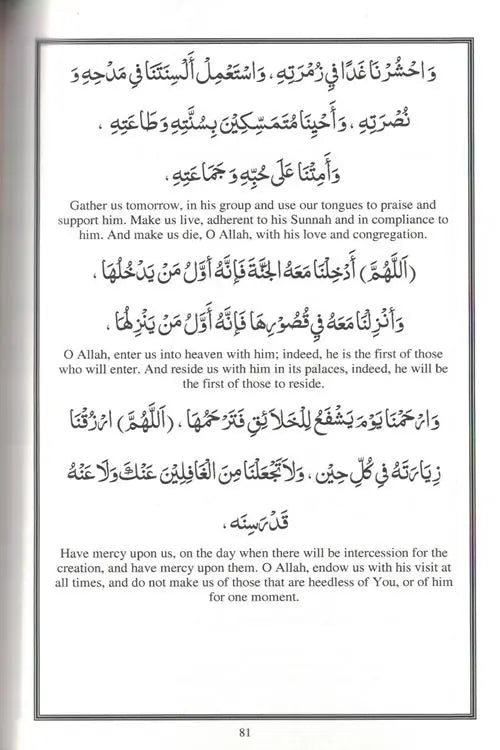 وَاحْشُرْنَا غَدًا فِي زُمْرَتِهِ ، وَاسْتَعْمِلْ أَلْسِنَتَنَا فِي مَدْحِهِ وَ
نُصْرَتِهِ ، وَأَحْيِنَا مُتَمَسِّكِيْنَ بِسُنَّتِهِ وَطَاعَتِهِ ،
وَأَمِتْنَا عَلَى حُبِّهِ وَجَمَاعَتِهِ ،
Gather us tomorrow, in his group and use our tongues to praise and
support him. Make us live, adherent to his Sunnah and in compliance to
him. And make us die, O Allah, with his love and congregation.
(اَللَّهُمَّ) أَدْخِلْنَا مَعَهُ الْجَنَّةَ فَإِنَّهُ أَوَّلُ مَنْ يَدْخُلُهَا ،
وَأَنْزِلْنَا مَعَهُ فِي قُصُوْرِهَا فَإِنَّهُ أَوَّلُ مَنْ يَنْزِلُهَا ،
O Allah, enter us into heaven with him; indeed, he is the first of those
who will enter. And reside us with him in its palaces, indeed, he will be
the first of those to reside.
وَارْحَمْنَا يَوْمَ يَشْفَعُ لِلْخَلَائِقِ فَتَرْحَمُهَا ، (اَللَّهُمَّ) ارْزُقْنَا
زِيَارَتَهُ فِي كُلِّ حِيْنٍ ، وَلَا تَجْعَلْنَا مِنَ الْغَافِلِيْنَ عَنْكَ وَلَا عَنْهُ
قَدْرَ سِنَه ،
Have mercy upon us, on the day when there will be intercession for the
creation, and have mercy upon them. O Allah, endow us with his visit at
all times, and do not make us of those that are heedless of You, or of him
for one moment.
81